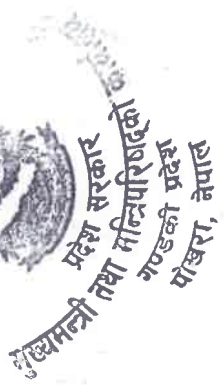 प्रदेश सरकार
मुख्यमन्त्री तथा मन्त्रिपरिषद्को
गण्डकी प्रदेश
पोखरा, नेपाल